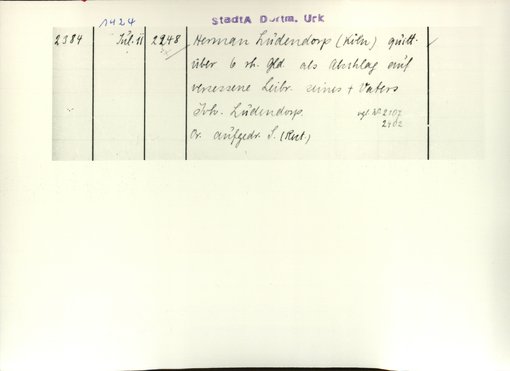 1424 StadtA Dortm. Urk
2384 Jul. 11 2248 Herman Lüdendorp (Köln) quitt.
über 6 rh. Gld als Abschlag auf
versessene Leibr. seines + Vaters
Joh. Lüdendorp. vgl. No 2107
2402
Or. aufgedr. S. (Rest.)